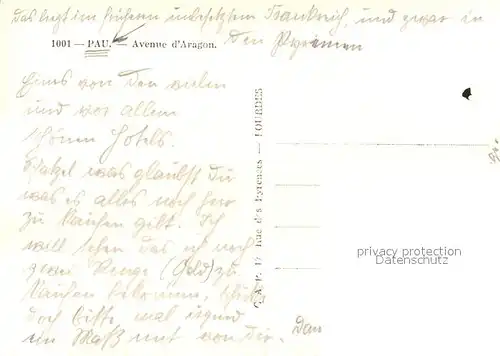 das liegt im früheren unbesetztem Frankreich, und zwar in
den Pyrenäen
1001 — PAU. — Avenue d'Aragon.
Eins von den vielen
und vor allem
schönen Hotels.
Schatzel was glaubst Du
was es alles noch hier
zu kaufen gibt. Ich
will sehen das ich noch
zwei Menge (Geld) zu
kaufen bekomme,
doch bitte mal irgend
ein Maß mit von Dir.
Rue des Pyrénées — LOURDES
privacy protection
Datenschutz